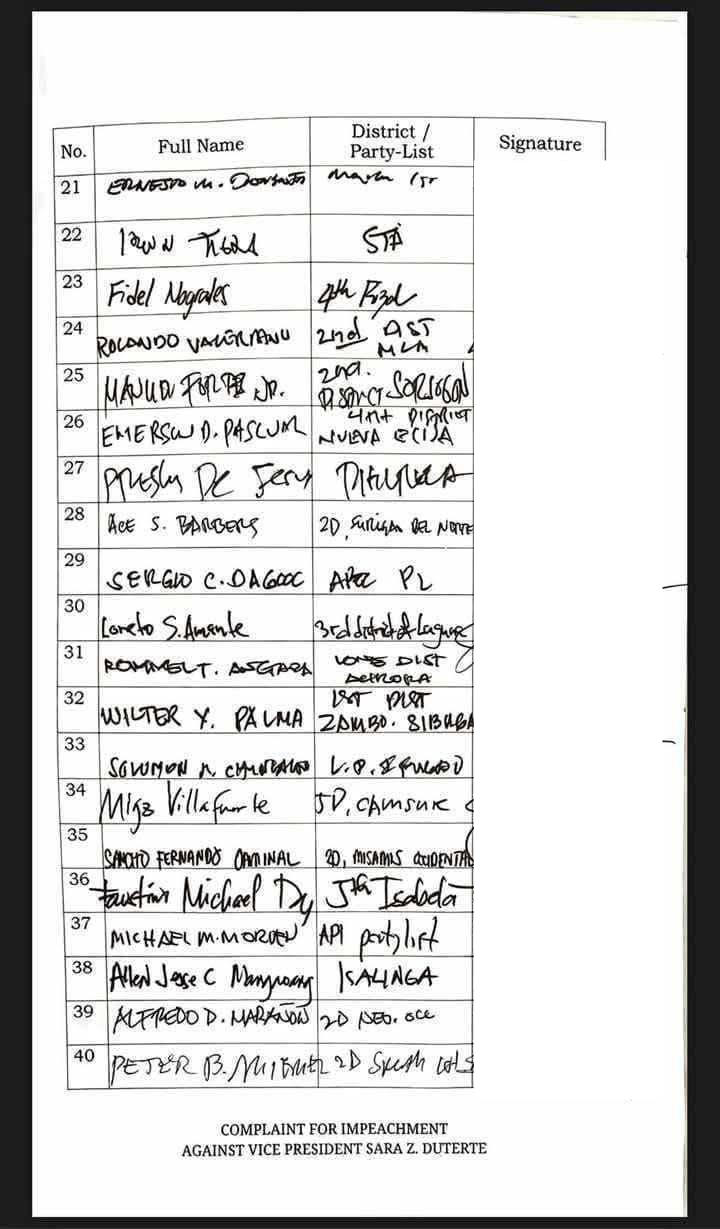 No. Full Name District / Party-List Signature
21 ERNESTO M. 1st
22
23 Fidel Nograles 4th Rizal
24 ROLANDO VALERIANO 2nd DIST
MLA
25 MANUEL JR. 2nd.
DISTRICT SORSOGON
26 EMERSON D. PASCUAL 4TH DISTRICT
NUEVA ECIJA
27 De
28 ACE S. BARBERS 2D, SURIGAO DEL NORTE
29 SERGIO C. DAGOOC APEC PL
30 Loreto S. Amante 3rd district of Laguna
31 ROMMEL T. ANGARA LONE DIST
AURORA
32 WILTER Y. PALMA 1ST DIST
ZAMBO. SIBUGA
33 SOLOMON R.
34 Migz Villafuerte 5D, CAMSUR
35 SANCHO FERNANDO OAMINAL 2D, MISAMIS OCCIDENTAL
36 Faustino Michael Dy 5th Isabela
37 MICHAEL M. MORDEN API partylist
38 Allen Jesse C Mangaoang KALINGA
39 ALFREDO D. MARAÑON 2D NEG. OCC
40 PETER B. MIGUEL 2D South
COMPLAINT FOR IMPEACHMENT
AGAINST VICE PRESIDENT SARA Z. DUTERTE